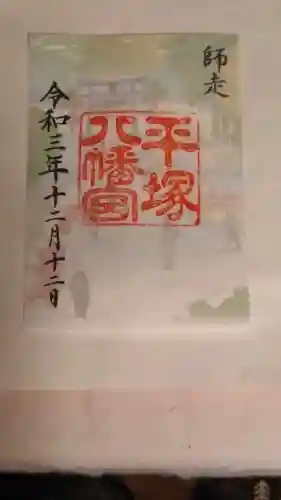 師走
平塚
八幡宮
令和三年十二月十二日